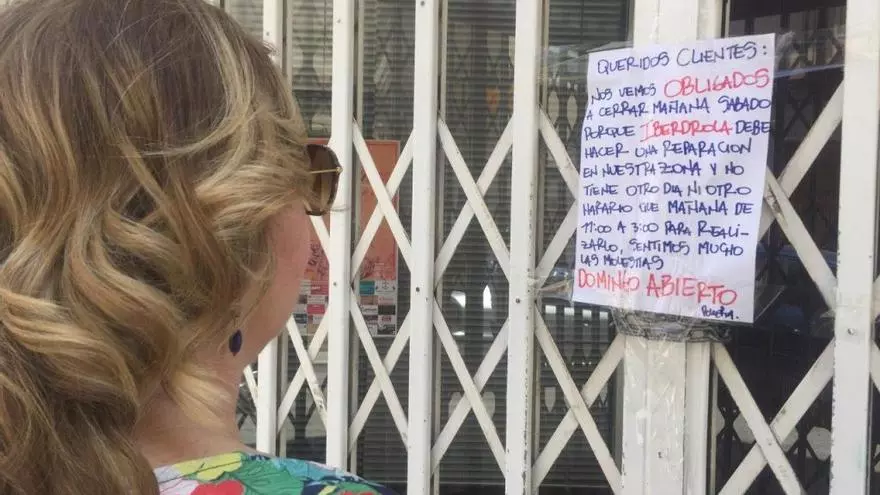 QUERIDOS CLIENTES:
NOS VEMOS OBLIGADOS
A CERRAR MAÑANA SABADO
PORQUE IBERDROLA DEBE
HACER UNA REPARACION
EN NUESTRA ZONA Y NO
TIENE OTRO DIA NI OTRO
HORARIO QUE MAÑANA DE
11:00 A 3:00 PARA REALI-
ZARLO, SENTIMOS MUCHO
LAS MOLESTIAS
DOMINGO ABIERTO